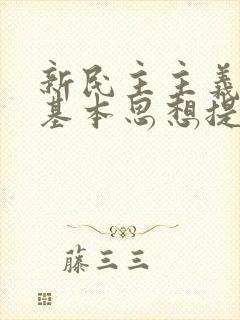 新民主主義
基本思想提
藤三三